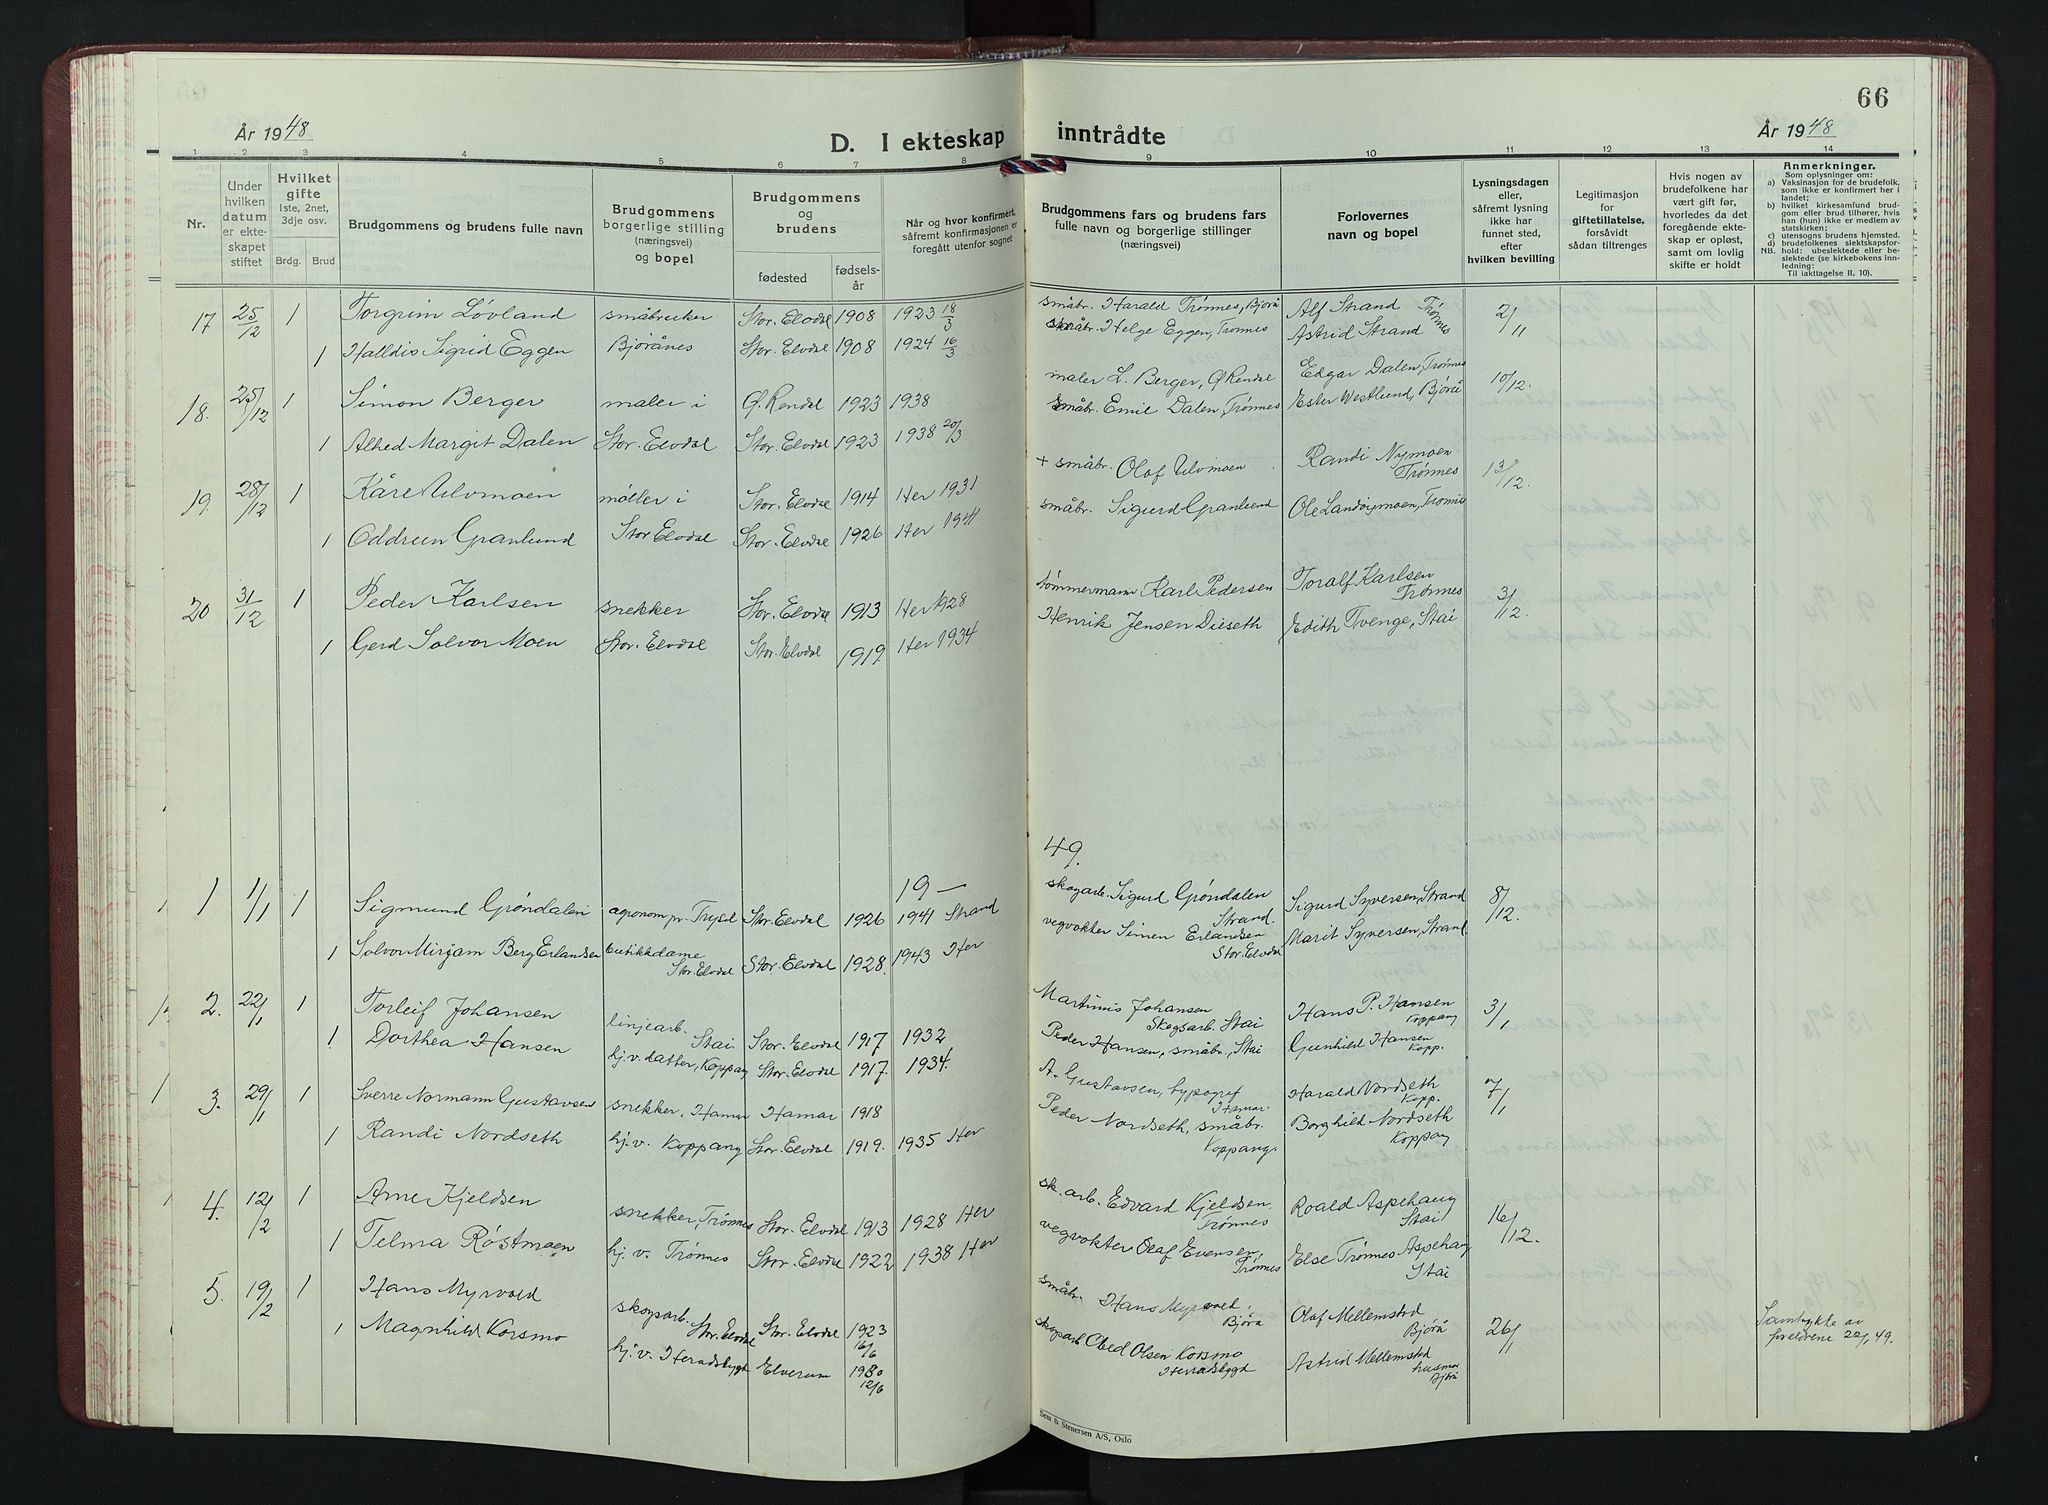 66
År 1948
D. I ekteskap inntrådte
År 1948
1 2 3 4 5 6 7 8 9 10 11 12 13 14
Nr.
Under hvilken datum er ekteskapet stiftet
Hvilket gifte 1ste, 2net, 3dje osv.
Brdg. Brud
Brudgommens og brudens fulle navn
Brudgommens borgerlige stilling (næringsvei) og bopel
Brudgommens og brudens
fødested
fødselsår
Når og hvor konfirmert, såfremt konfirmasjonen er foregått utenfor sognet
Brudgommens fars og brudens fars fulle navn og borgerlige stillinger (næringsvei)
Forlovernes navn og bopel
Lysningsdagen eller, såfremt lysning ikke har funnet sted, efter hvilken bevilling
Legitimasjon for giftetillatelse, forsåvidt sådan tiltrenges
Hvis nogen av brudefolkene har vært gift før, hvorledes da det foregående ekteskap er opløst, samt om lovlig skifte er holdt
Anmerkninger.
Som oplysninger om:
a) Vaksinasjon for de brudefolk, som ikke er konfirmert her i landet;
b) hvilket kirkesamfund brudgom eller brud tilhører, hvis han (hun) ikke er medlem av statskirken;
c) utensogns brudens hjemsted.
d) brudefolkenes slektskapsforhold: ubeslektede eller beslektede (se kirkebokens innledning:
NB. Til iakttagelse II. 10).
17 25/12 1 Torgrim Løvland småbruker Stor-Elvdal 1908 1923 18/3 småbr. Harald Trønnes, Bjørå Alf Strand Trønnes 2/11
1 Halldis Sigrid Eggen Bjørånes Stor. Elvdal 1908 1924 16/3 småbr. Helge Eggen, Trønnes Astrid Strand
18. 25/12 1 Simon Berger maler i Ø. Rendal 1923 1938 maler L. Berger, Ø Rendal Edgar Dalen, Trønnes 10/12.
1 Alhed Margit Dalen Stor. Elvdal Stor. Elvdal 1923 1938 20/3 småbr. Emil Dalen, Trønnes Ester Westlund, Bjørå
19. 28/12 1 Kåre Ulvmoen møller i Stor. Elvdal 1914 Her 1931 + småbr. Olaf Ulvmoen Randi Nymoen Trønnes 13/12.
1 Oddrun Granlund Stor Elvdal Stor. Elvdal 1926 Her 1941 småbr. Sigurd Granlund Ole Trønnes
20 31/12 1 Peder Karlsen snekker Stor. Elvdal 1913 Her 1928 tømmermann Karl Pedersen Toralf Karlsen Trønnes 3/12
1 Gerd Solvor Moen Stor. Elvdal Stor. Elvdal 1919. Her 1934 Henrik Jensen Dieseth Edith Tvenge, Stai
19— 49.
1 1/1 1 Sigmund Grøndalen agronom pr. Trysil Stor. Elvdal 1926 1941 Strand skogarb. Sigurd Grøndalen Strand. Sigurd Syversen, Strand 8/12.
1 Solvor Mirjam Berg Erlandsen butikkdame Stor. Elvdal Stor. Elvdal 1928. 1943 Her vegvokter Simen Erlandsen Stor. Elvdal Marit Syversen, Strand
2. 22/1 1 Torleif Johansen linjearb. Stai Stor. Elvdal 1917 1932 Martinus Johansen Skogsarb. Stai Hans P. Hansen Koppang 3/1
1 Dorthea Hansen hj. v. datter, Koppang Stor. Elvdal 1917. 1934. Peder Hansen, småbr., Stai Gunhild Hansen Kopp.
3. 29/1 1 Sverre Normann Gustavsen snekker, Hamar Hamar 1918 A. Gustavsen, typograf Hamar. Harald Nordseth Kopp. 7/1
1 Randi Nordseth hj. v. Koppang Stor. Elvdal 1919. 1935 Her Peder Nordseth, småbr. Koppang. Borghild Nordseth Koppang
4. 12/2 1 Arne Kjeldsen snekker, Trønnes Stor. Elvdal 1913 1928 Her sk. arb. Edvard Kjeldsen, Trønnes Roald Aspehaug Stai 16/12.
1 Telma Røstmoen hj. v. Trønnes Stor. Elvdal 1922 1938 Her vegvokter Olaf Evensen, Trønnes Else Trønnes Aspehaug Stai
5. 19/2 1 Hans Myrvold skogsarb. Stor. Elvdal Stor. Elvdal 1923 16/6 småbr. Hans Myrvold, Bjørå Olaf Mellemstad Bjørå 26/1 Samtykke av foreldrene 22/1 49.
1 Magnhild Korsmo hj. v. Heradsbygd Elverum 1930 12/6 skogsarb Obed Olsen Korsmo Heradsbygd Astrid Mellemstad husmor Bjørå
Sem & Stenersen A/S, Oslo